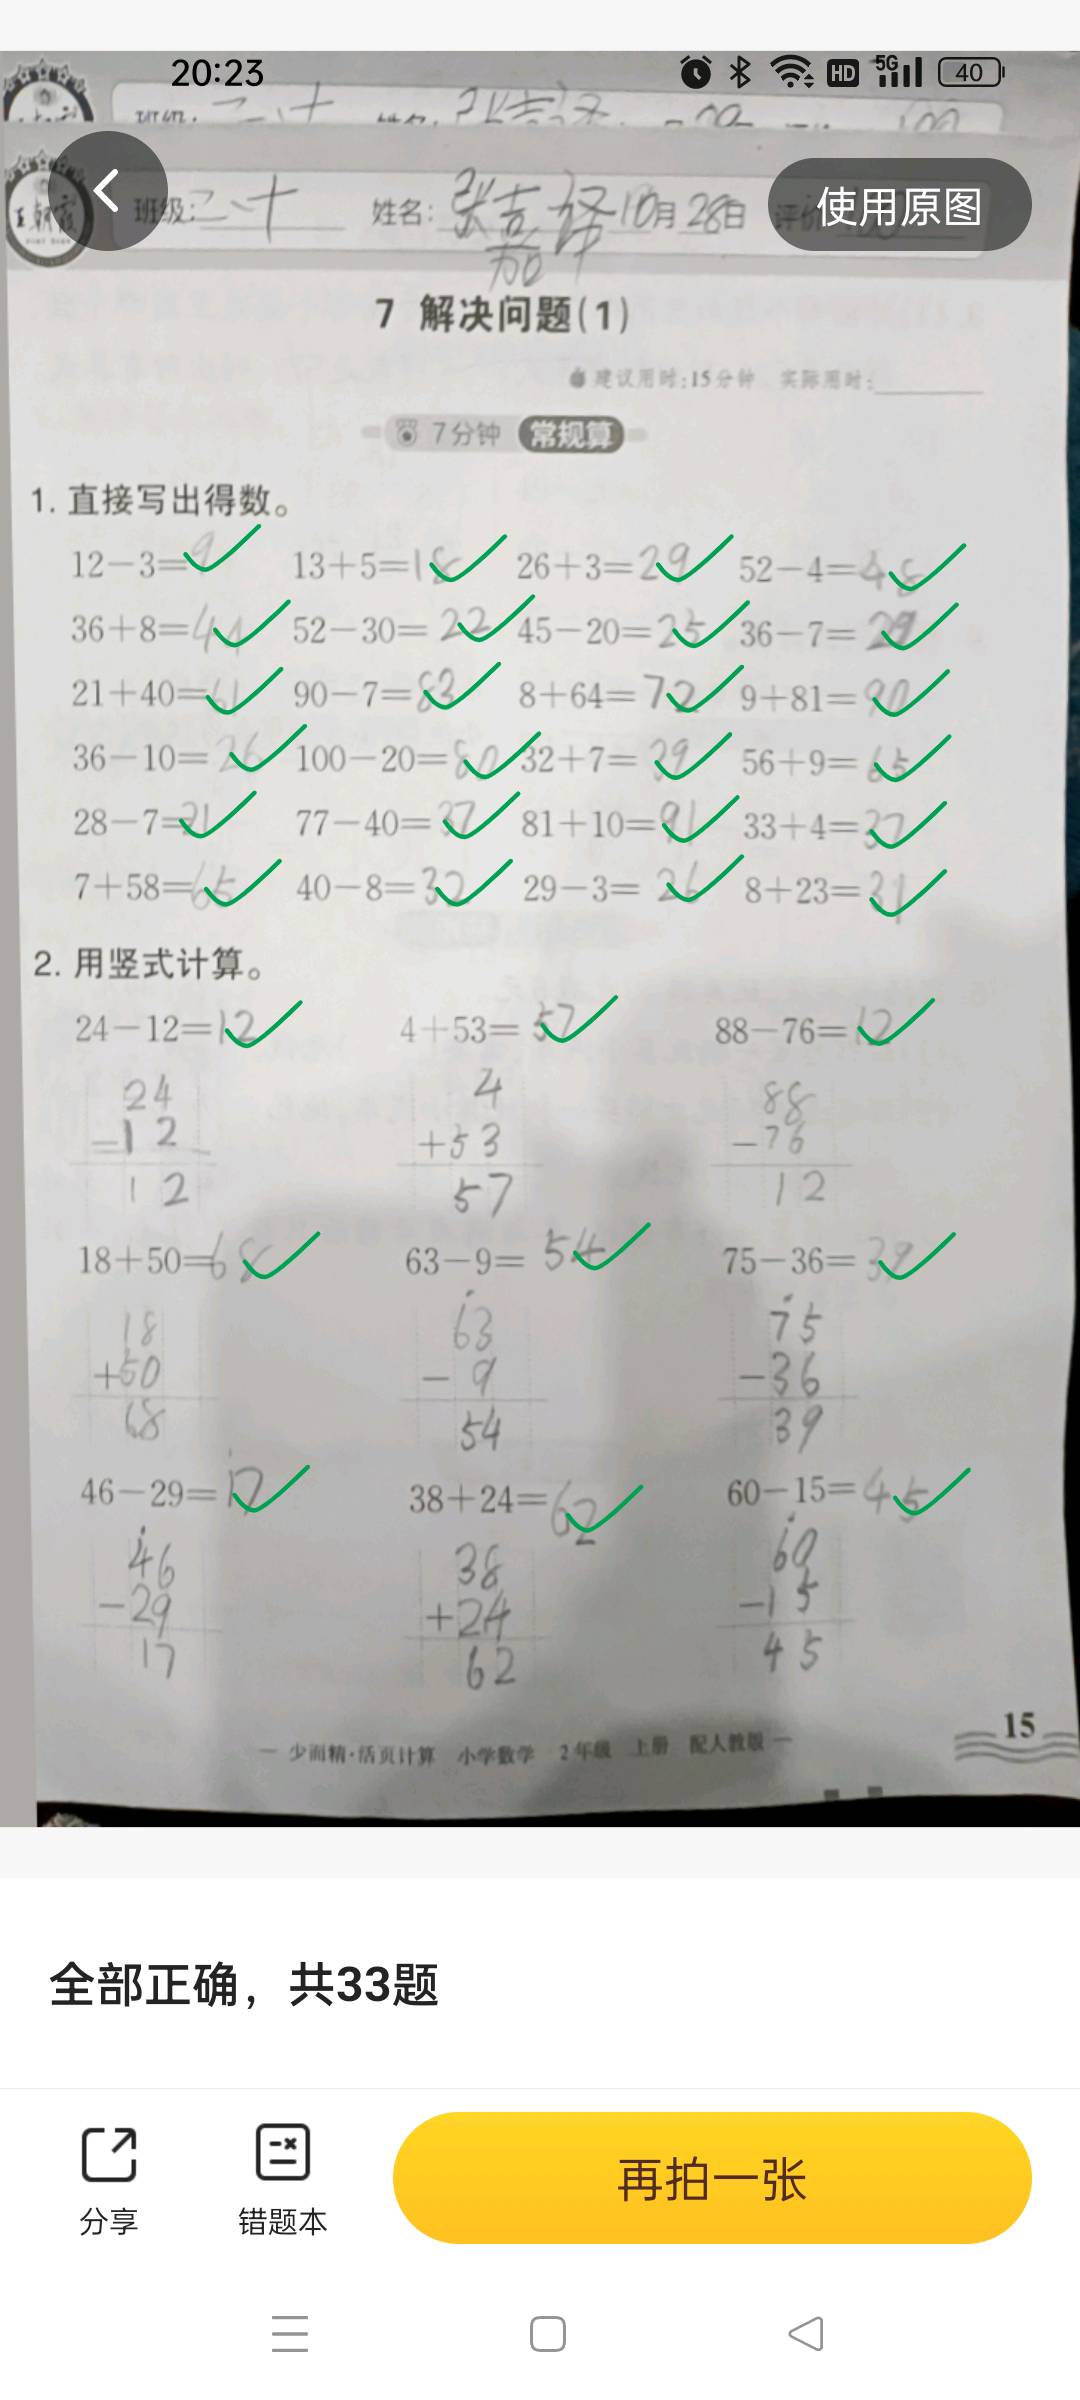 20:23
HD 5G 40
班级: 姓名:
王朝霞 班级:二、十 姓名: 10月28日 评价
使用原图
7 解决问题(1)
建议用时:15分钟 实际用时:
7分钟 常规算
1. 直接写出得数。
12-3=9 13+5=18 26+3=29 52-4=48
36+8=44 52-30=22 45-20=25 36-7=29
21+40=61 90-7=83 8+64=72 9+81=90
36-10=26 100-20=80 32+7=39 56+9=65
28-7=21 77-40=37 81+10=91 33+4=37
7+58=65 40-8=32 29-3=26 8+23=31
2. 用竖式计算。
24-12=12 4+53=57 88-76=12
24 4 88
=12 +53 -76
12 57 12
18+50=68 63-9=54 75-36=39
18 63 75
+50 - 9 -36
68 54 39
46-29=17 38+24=62 60-15=45
46 38 60
-29 +24 -15
17 62 45
— 少而精·活页计算 小学数学 2年级 上册 配人教版 —
15
全部正确，共33题
分享 错题本 再拍一张